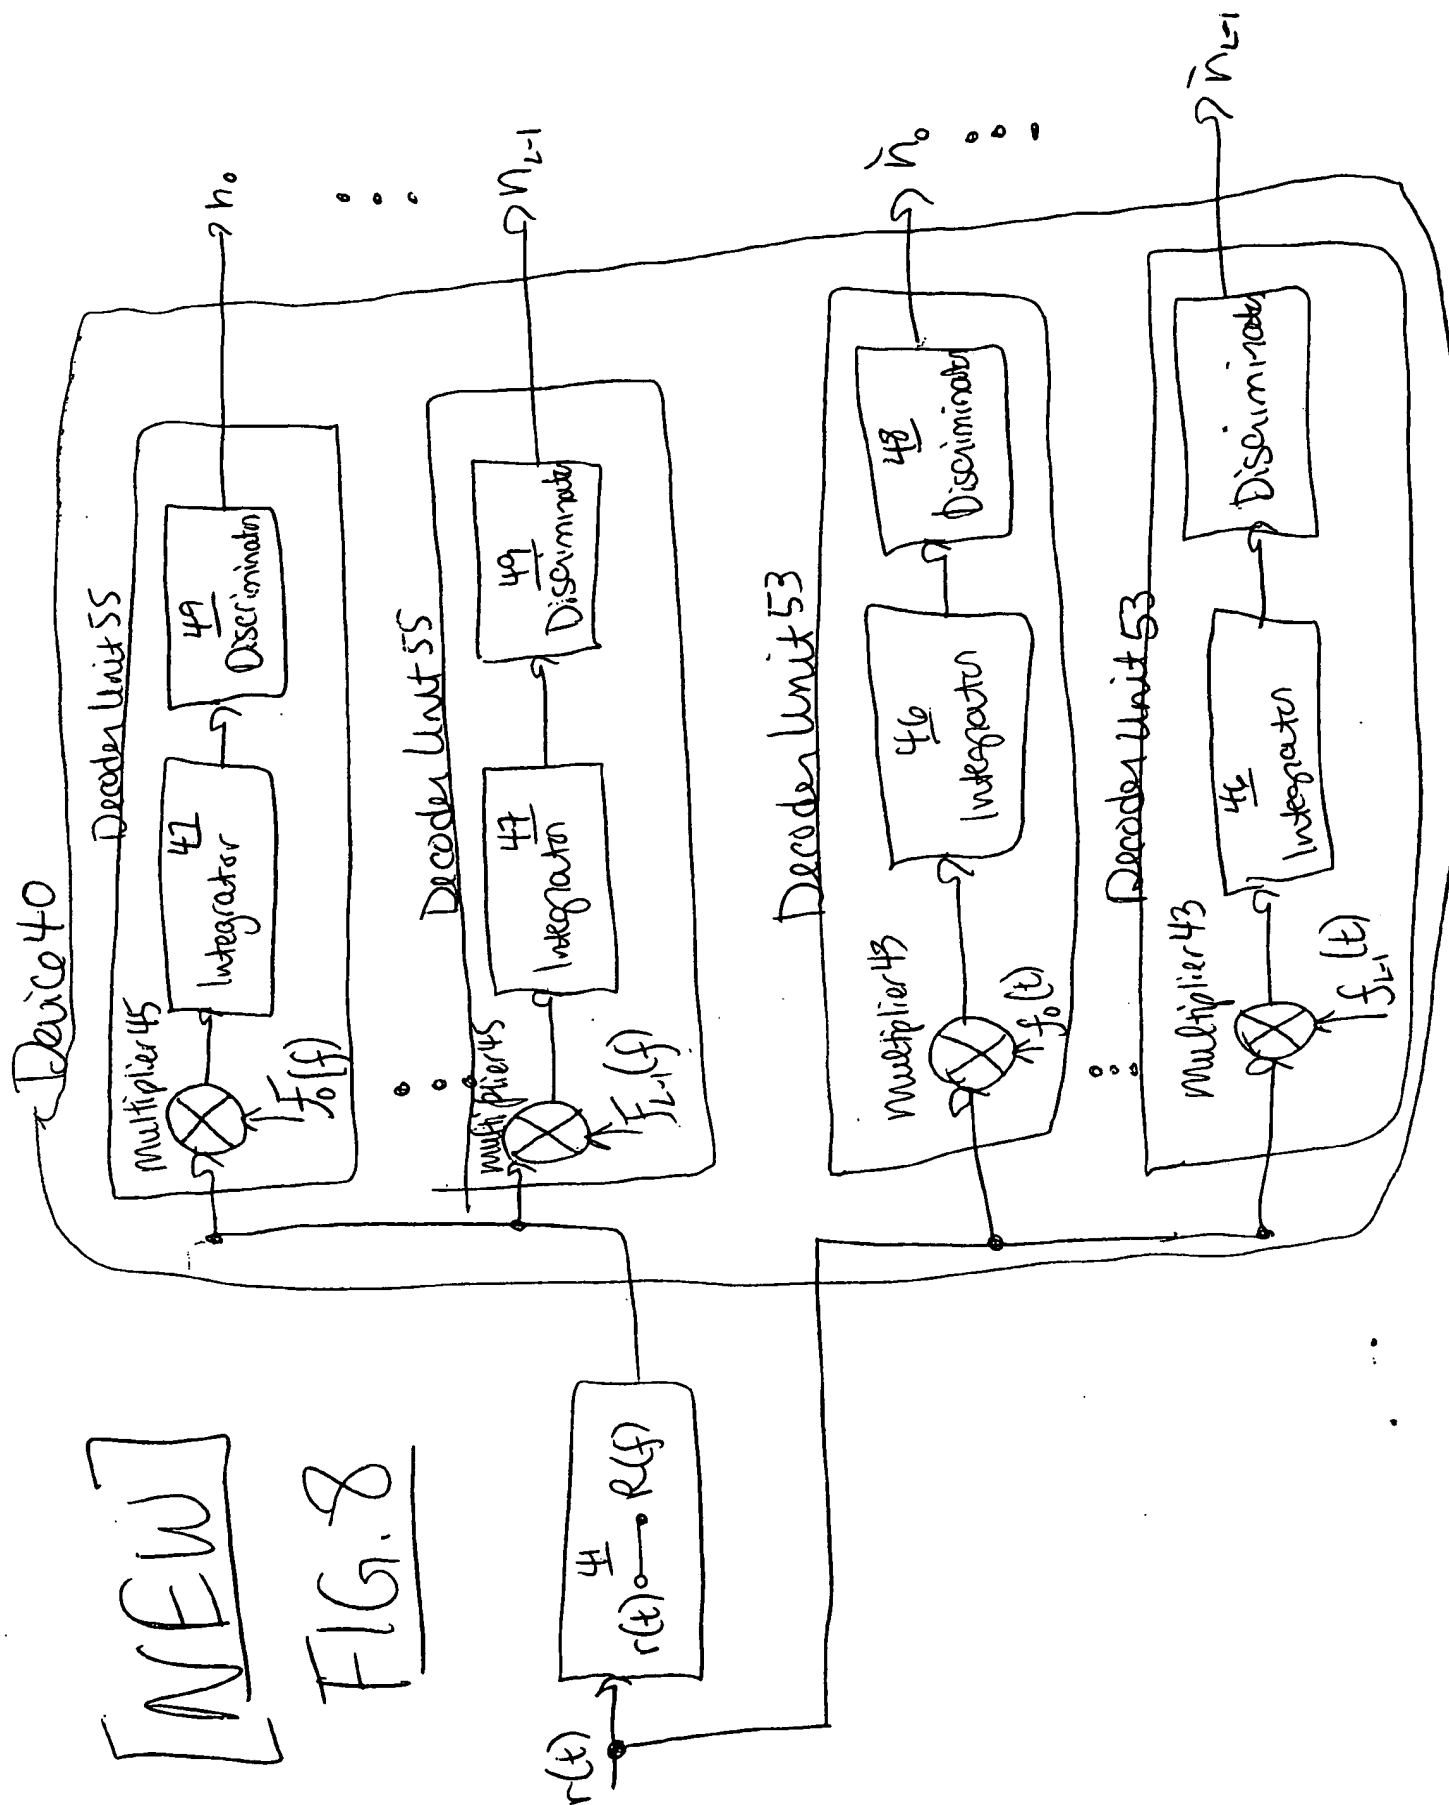 [NEW]
FIG. 8
Device 40
Decoder Unit 55
multiplier 45
F₀(f)
47
Integrator
49
Discriminator
n₀
Decoder Unit 55
multiplier 45
F_L-1(f)
47
Integrator
49
Discriminator
n_L-1
r(t)
41
r(t) R(f)
Decoder Unit 53
multiplier 43
f₀(t)
46
Integrator
48
Discriminator
n̄₀
Decoder Unit 53
multiplier 43
f_L-1(t)
46
Integrator
Discriminator
n̄_L-1